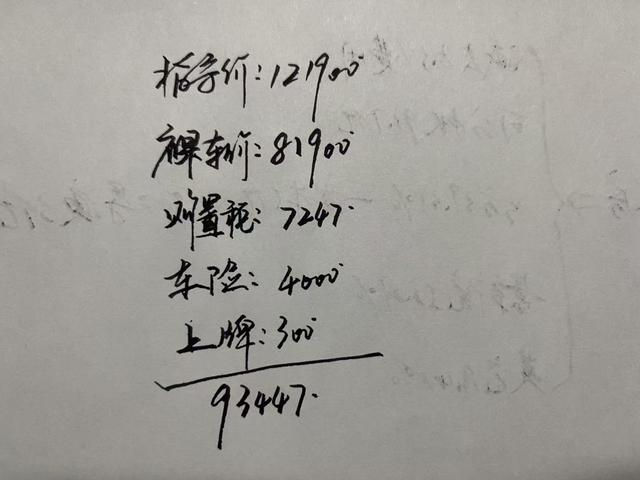 指导价:121900
裸车价:81900
购置税:7247.
车险:4000
上牌:300
93447.